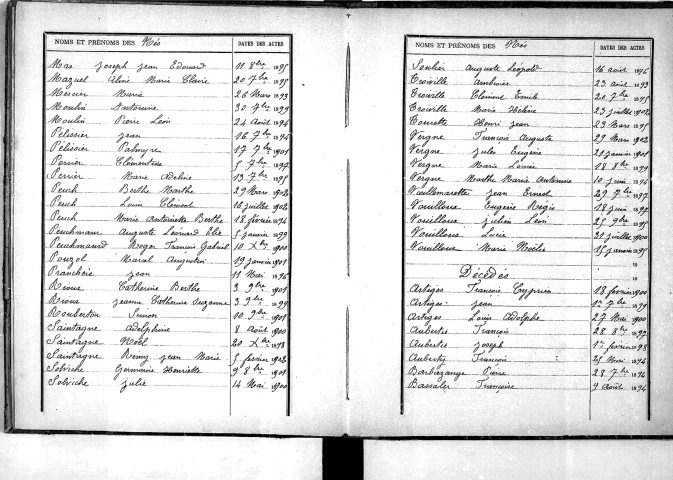 NOMS ET PRÉNOMS DES Nés DATES DES ACTES
Mas Joseph Jean Edouard 11 8bre 1895
Mazuel Aliné Marie Claire 20 7bre 1895
Mercier Marie 26 Mars 1893
Moulin Antoinine 30 7bre 1899
Moulin Pierre Léon 24 Août 1896
Pélissier Jean 16 7bre 1894
Pélissier Palmyre 17 7bre 1901
Perrier Clémentine 5 7bre 1897
Perrier Marie Adeline 13 7bre 1895
Peuch Berthe Marthe 29 Mars 1902
Peuch Louis Clément 16 juillet 1902
Peuch Marie Antoinette Berthe 18 février 1894
Peuchmaur Auguste Léonard Elie 5 janvier 1899
Peuchmaurd Roger François Gabriel 10 Xbre 1900
Pouzol Marial Augustin 19 janvier 1901
Prancherie Jean 11 Mai 1896
Rioux Catherine Berthe 3 9bre 1901
Rioux Jeanne Catherine Suzanne 3 9bre 1899
Roubertou Simon 10 9bre 1901
Saintagne Adelphine 8 Août 1900
Saintagne Noël 20 Xbre 1893
Saintagne Rémy Jean Marie 5 février 1902
Solviche Germaine Henriette 9 8bre 1901
Solviche Julie 14 Mai 1900
NOMS ET PRÉNOMS DES Nés DATES DES ACTES
Soulier Auguste Léopold 16 août 1896
Troiville Ambroise 23 août 1893
Troiville Clément Emile 20 7bre 1895
Troiville Marie Hélène 23 juillet 1902
Tourette Henri Jean 23 Mars 1895
Vergne François Auguste 29 Mars 1902
Vergne Jules Eugène 28 janvier 1901
Vergne Marie Louise 18 8bre 1899
Vergne Marthe Marie Antonine 10 juin 1894
Vuillemarette Jean Ernest 29 7bre 1897
Vouilloux Eugène Régis 18 juin 1897
Vouilloux Julien Léon 25 9bre 1895
Vouilloux Lucie 30 juillet 1900
Vouilloux Marie Noélie 15 janvier 1895
18
Décédés 18
Artiges François Cyprien 18 février 1900
Artiges Jean 1er 7bre 1899
Artiges Louis Adolphe 27 Mai 1900
Aubertie François 28 8bre 1897
Aubertie Joseph 1er février 1898
Auberty François 25 Mai 1894
Barbazange Pierre 28 7bre 1894
Bassaler Françoise 9 Août 1894